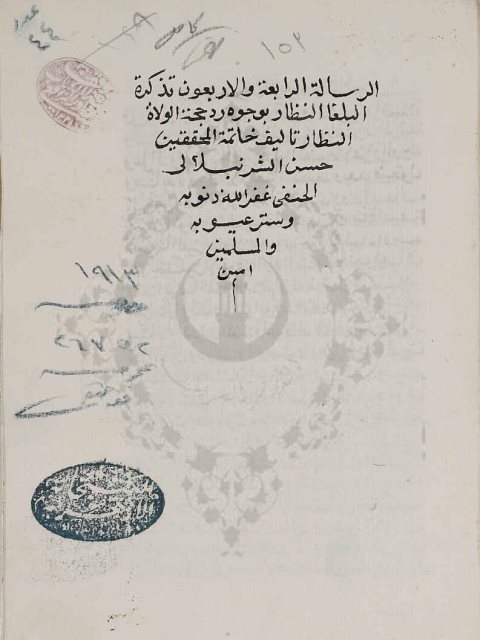 ١٥٣
الرسالة الرابعة والاربعون تذكرة
البلغا النظار بوجوه رد حجة الولاة
النظار تاليف خاتمة المحققين
حسن الشرنبلالى
الحنفى غفر الله ذنوبه
وستر عيوبه
والمسلمين
امين
١٩١٣
٢٦٧٥٢